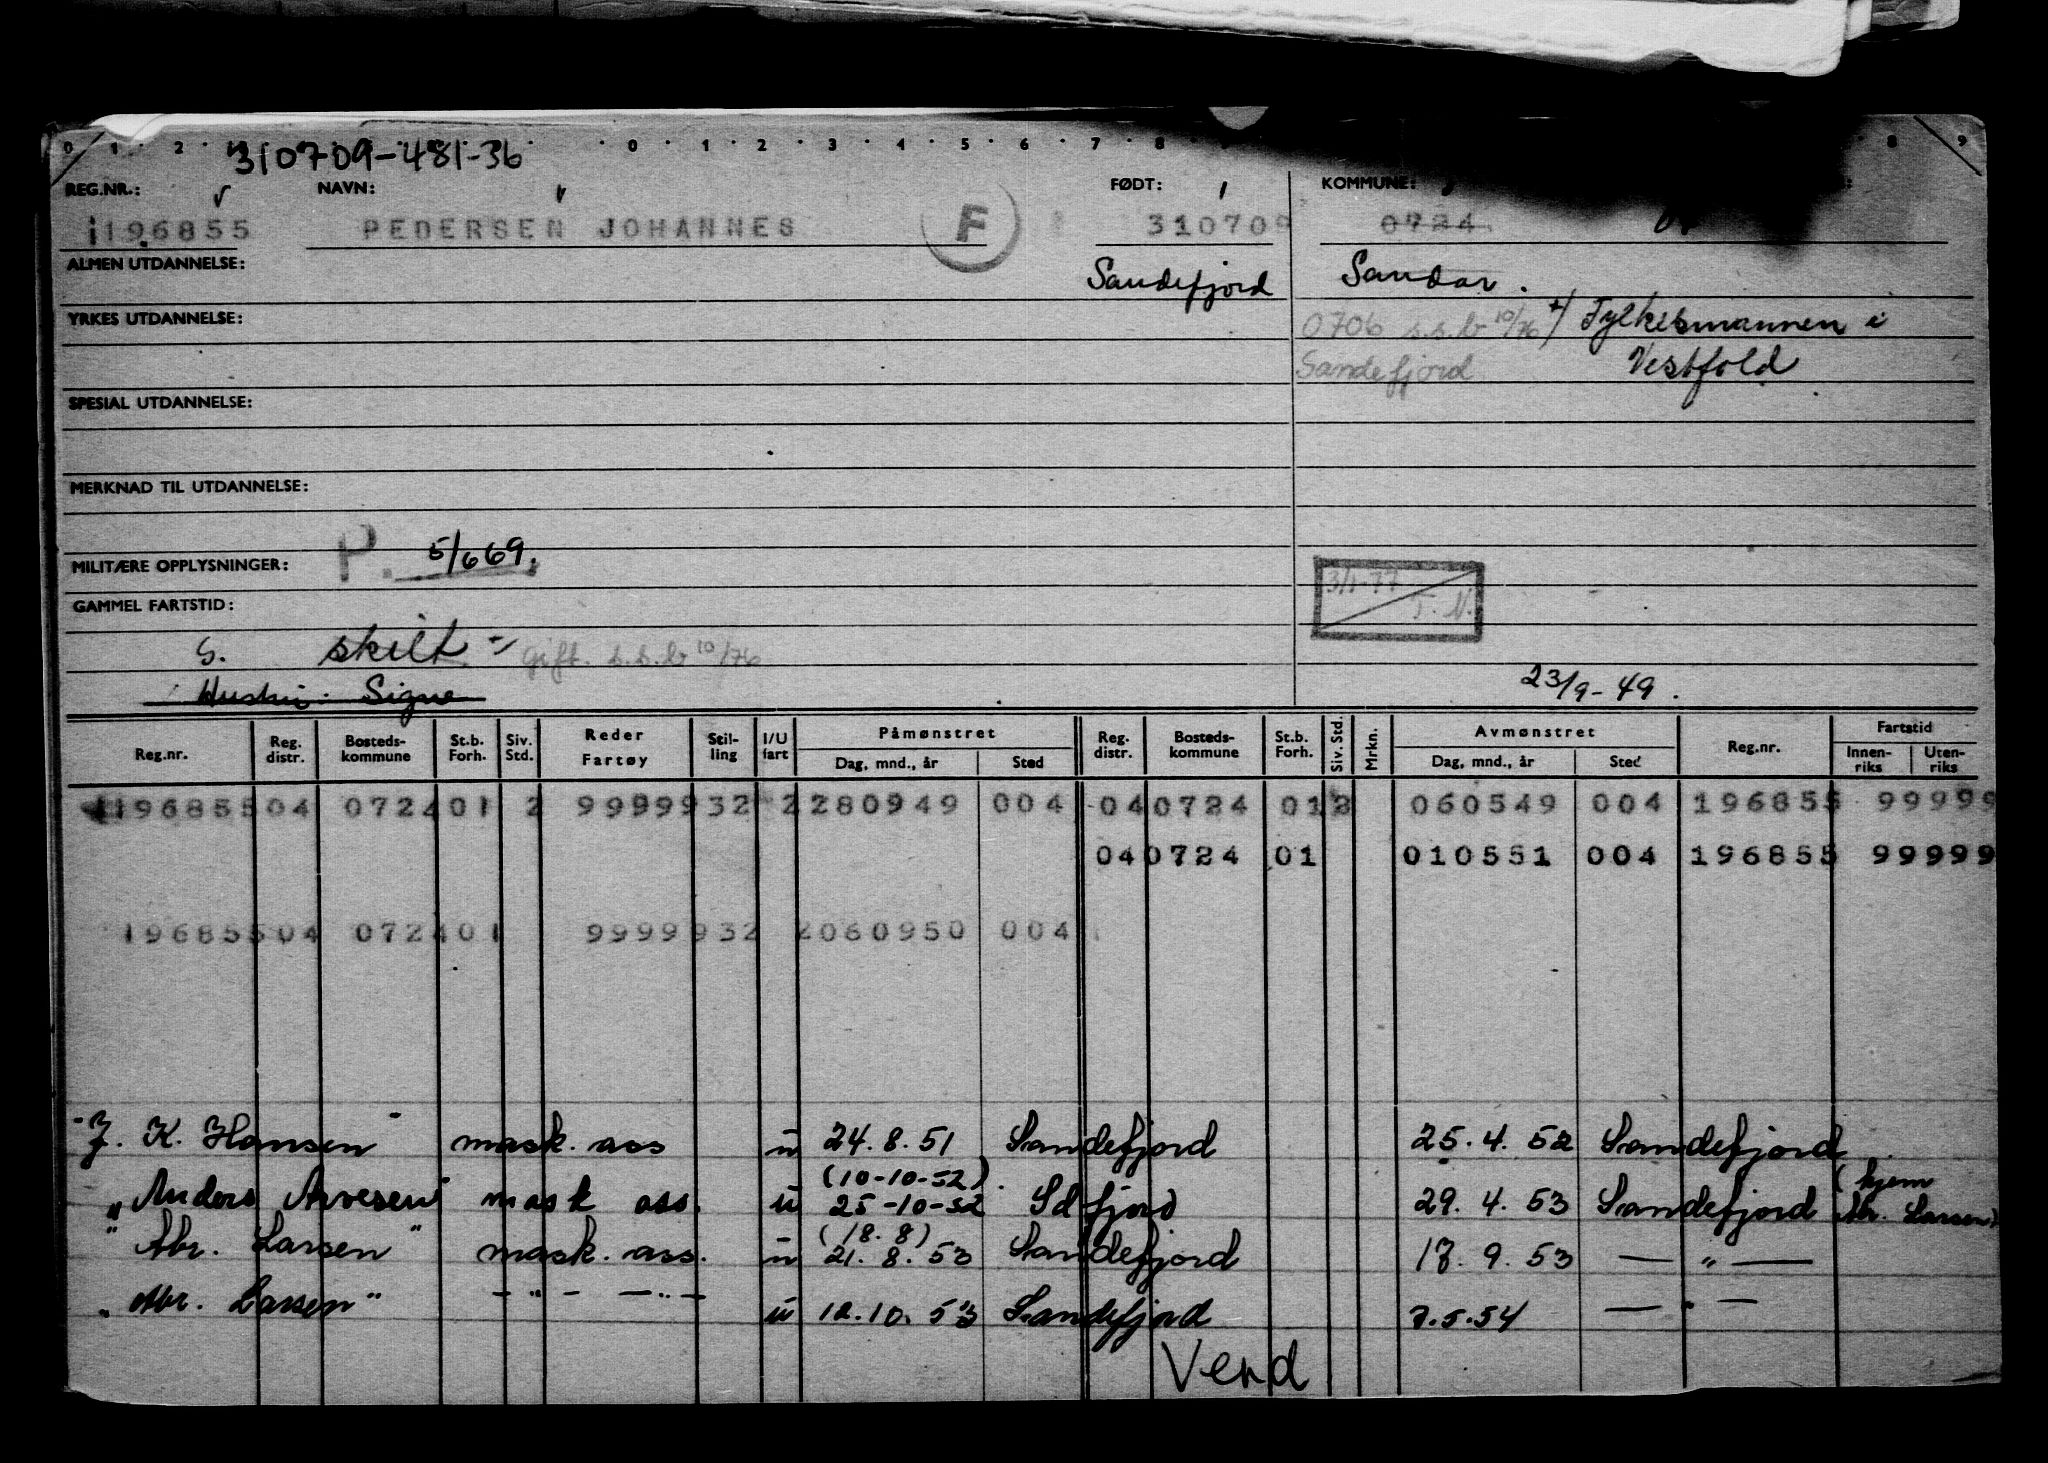 0 1 2 0 1 2 3 4 5 6 7 8 8 9
310709-481-36
REG.NR.: NAVN: FØDT: KOMMUNE:
196855 PEDERSEN JOHANNES F 310709 0724
ALMEN UTDANNELSE: Sandefjord Sandar.
YRKES UTDANNELSE: 0706 s.s.b 10/76 +) Fylkesmannen i
Sandefjord Vestfold
SPESIAL UTDANNELSE:
MERKNAD TIL UTDANNELSE:
MILITÆRE OPPLYSNINGER: P. 5/6 69.
3/1-77 T. N.
GAMMEL FARTSTID:
G. skilt = gift. s.s.b 10/76
Hustru: Signe 23/9-49.
Reg.nr. Reg. distr. Bosteds- kommune St.b. Forh. Siv. Std. Reder Fartøy Stil- ling I/U fart Påmønstret Dag, mnd., år Sted Reg. distr. Bosteds- kommune St.b. Forh. Siv. Std. Mrkn. Avmønstret Dag, mnd., år Sted Reg.nr. Fartstid Innen- riks Uten- riks
196855 04 0724 01 2 9999 932 2 280949 004 04 0724 01 2 060549 004 196855 99999
04 0724 01 010551 004 196855 99999
196855 04 0724 01 9999 932 2 060950 004
"J. K. Hansen" mask. ass u 24.8.51 Sandefjord 25.4.52 Sandefjord
(10-10-52).
"Anders Arvesen" mask ass. u 25-10-52 Sdfjord 29.4.53 Sandefjord (hjem Abr. Larsen)
(18.8)
"Abr. Larsen" mask. ass. u 21.8.53 Sandefjord 17.9.53 — " —
"Abr. Larsen" - " - — " — u 12.10.53 Sandefjord 7.5.54 — " —
Vend